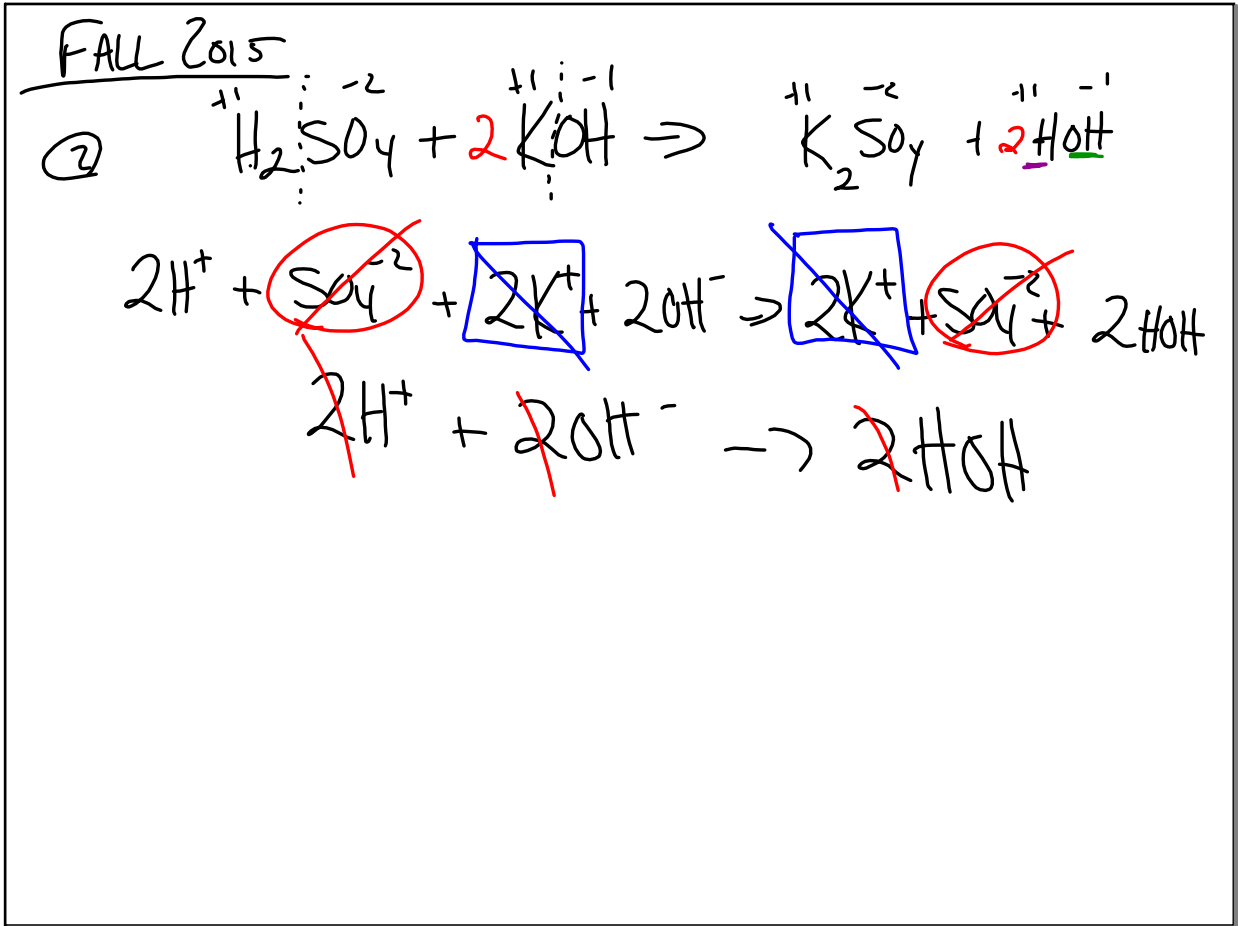 FALL 2015
+1 -2 +1 -1 +1 -2 +1 -1
② H₂SO₄ + 2 KOH → K₂SO₄ + 2HOH
2H⁺ + SO₄⁻² + 2K⁺ + 2OH⁻ → 2K⁺ + SO₄⁻² + 2HOH
2H⁺ + 2OH⁻ → 2HOH